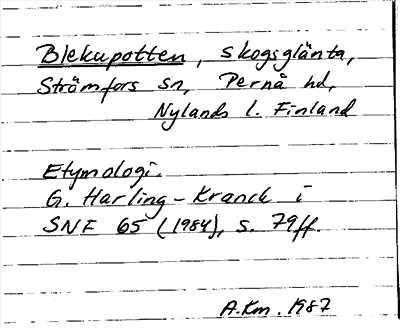 Blekupotten, skogsglänta,
Strömfors sn, Pernå hd,
Nylands l. Finland
Etymologi.
G. Harling-Kranck i
SNF 65 (1984), s. 79ff.
A.Km. 1987